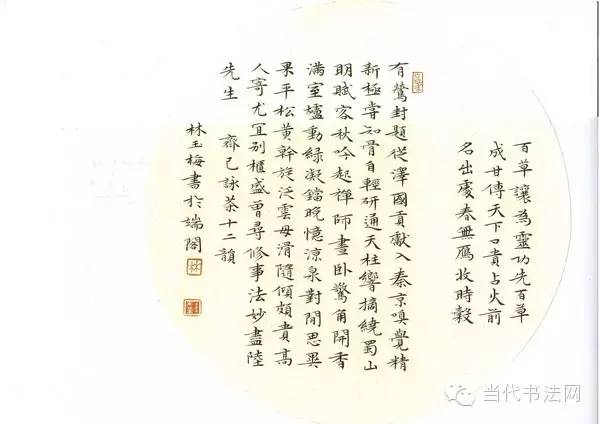 百草讓為靈功先百草
成甘傳天下口貴占火前
名出處春無雁收時榖
有鶯封題從澤國貢獻入秦京嗅覺精
新極嘗知骨自輕研通天柱響摘繞蜀山
明賦客秋吟起禪師晝卧驚角開香
满室爐動緑凝鐺晚憶凉泉對閒思異
果平松黃幹旋泛雲母滑隨傾頗貴高
人寄尤宜別櫃盛曾尋修事法妙盡陸
先生 齊己詠茶十二韻
林玉梅書於端閣
当代书法网